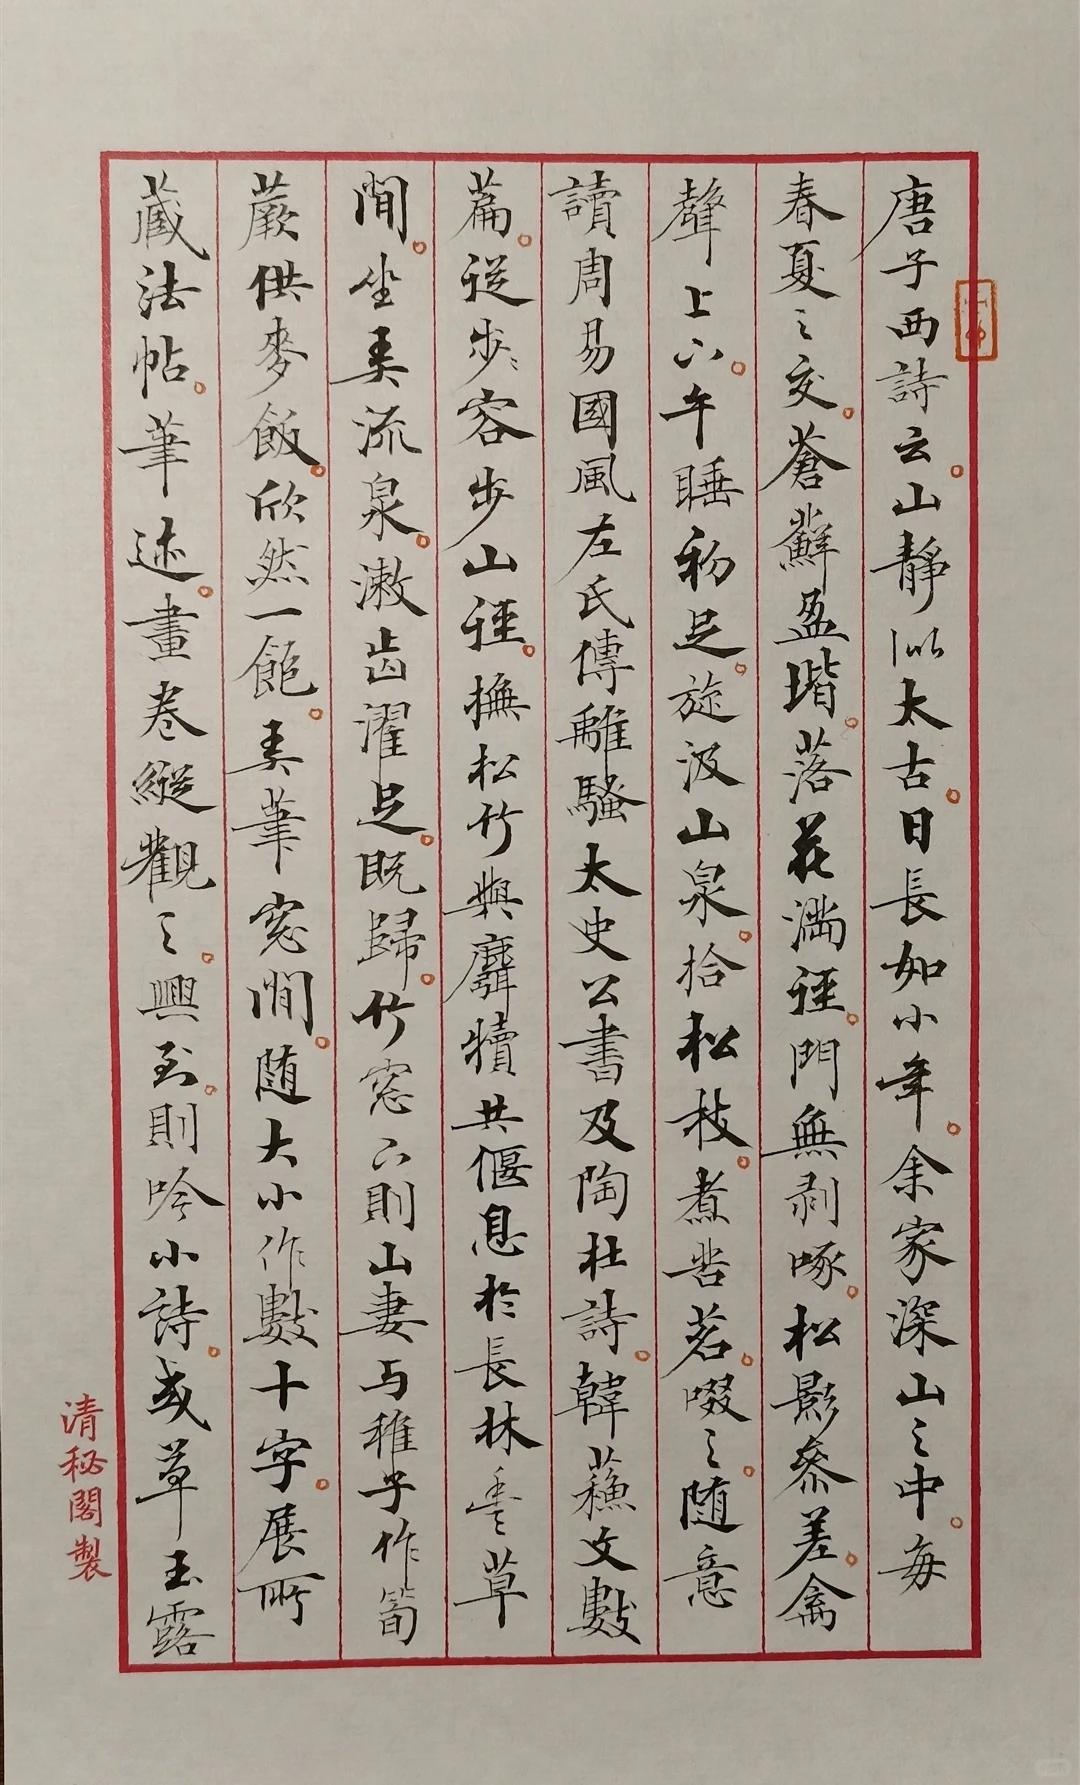 唐子西詩云。山靜似太古。日長如小年。余家深山之中。每
春夏之交。蒼蘚盈堦。落花滿徑。門無剥啄。松影參差。禽
聲上下。午睡初足。旋汲山泉。拾松枝。煮苦茗。啜之。隨意
讀周易國風左氏傳離騷太史公書及陶杜詩。韓蘇文數
篇。從步步容步山徑。撫松竹與麛犢共偃息於長林豐草
間。坐弄流泉。漱齒濯足。既歸。竹窓下則山妻与稚子作筍
蕨供麥飯。欣然一飽。弄筆窓間。随大小作數十字。展所
藏法帖。筆迹。畫卷縱觀之。興到。則吟小詩。或草玉露
清秘閣製